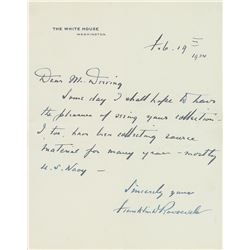 THE WHITE HOUSE
WASHINGTON
Feb. 19
1934
Dear Mr.
Some day I shall hope to have
the pleasure of seeing your collection –
I too have been collecting source
material for many years – mostly
U.S. Navy –
Sincerely yours
Franklin D Roosevelt